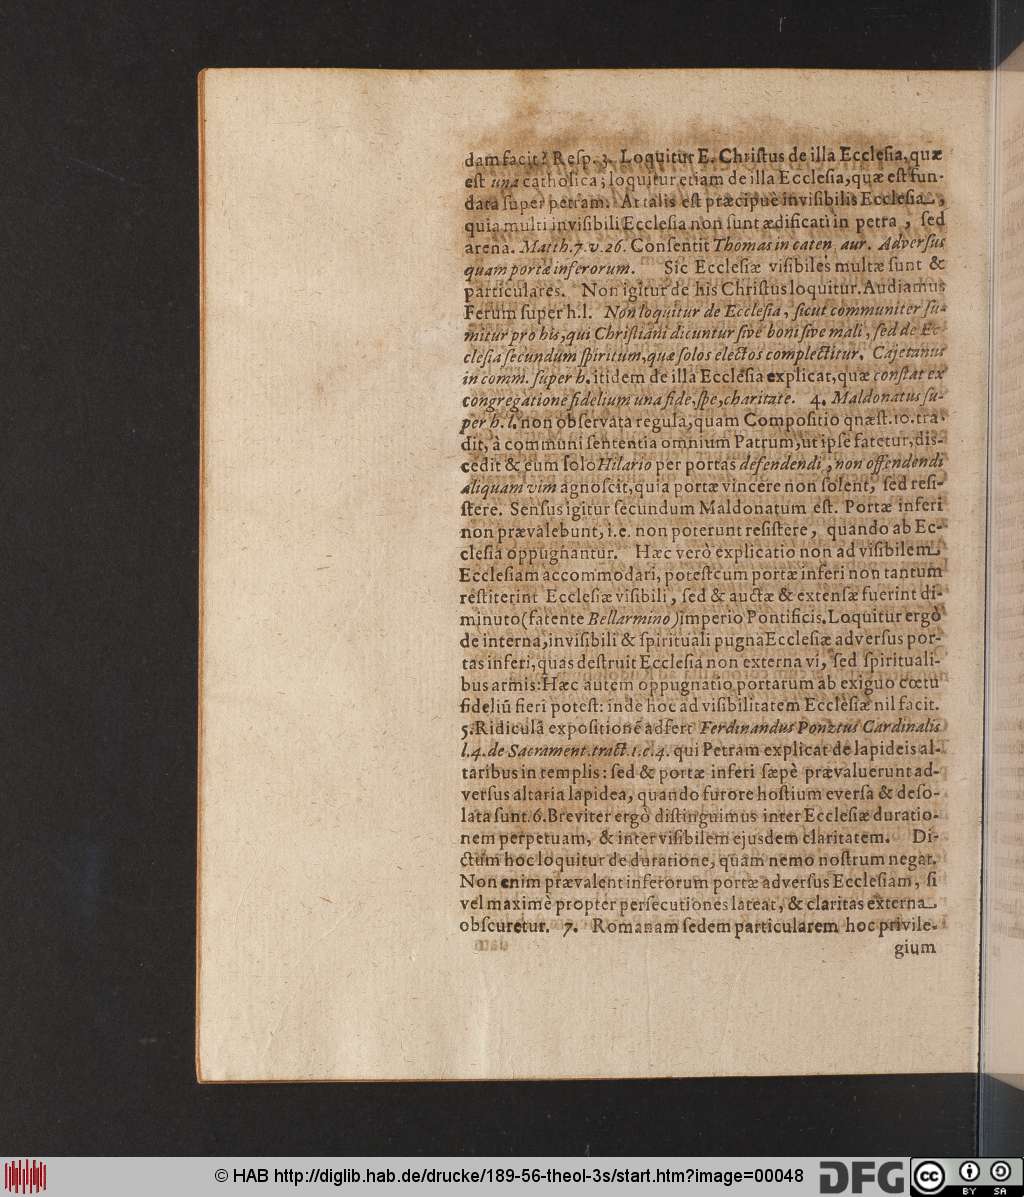 dam facit? Resp. 3. Loquitur E. Christus de illa Ecclesia, quæ
est una catholica; loquitur etiam de illa Ecclesia, quæ est fun-
data super petram. At talis est præcipuè invisibilis Ecclesia,
quia multi in visibili Ecclesia non sunt ædificati in petra, sed
arena. Matth. 7. v. 26. Consentit Thomas in caten. aur. Adversus
quam portæ inferorum. Sic Ecclesiæ visibiles multæ sunt &
particulares. Non igitur de his Christus loquitur. Audiamus
Ferum super h. l. Non loquitur de Ecclesia, sicut communiter su-
mitur pro his, qui Christiani dicuntur sive boni sive mali, sed de Ec-
clesia secundum spiritum, quæ solos electos complectitur. Cajetanus
in comm. super h. itidem de illa Ecclesia explicat, quæ constat ex
congregatione fidelium una fide, spe, charitate. 4. Maldonatus su-
per h. l. non observata regula, quam Compositio qnæst. 10. tra-
dit, à communi sententia omnium Patrum, ut ipse fatetur, dis-
cedit & cum solo Hilario per portas defendendi, non offendendi
aliquam vim agnoscit, quia portæ vincere non solent, sed resi-
stere. Sensus igitur secundum Maldonatum est. Portæ inferi
non prævalebunt, i.e. non poterunt resistere, quando ab Ec-
clesia oppugnantur. Hæc verò explicatio non ad visibilem
Ecclesiam accommodari, potest cum portæ inferi non tantum
restiterint Ecclesiæ visibili, sed & auctæ & extensæ fuerint di-
minuto (fatente Bellarmino) imperio Pontificis. Loquitur ergò
de interna, invisibili & spirituali pugna Ecclesiæ adversus por-
tas inferi, quas destruit Ecclesia non externa vi, sed spirituali-
bus armis: Hæc autem oppugnatio portarum ab exiguo cœtu
fideliũ fieri potest: inde hoc ad visibilitatem Ecclesiæ nil facit.
5. Ridiculã expositionẽ adfert Ferdinandus Ponztus Cardinalis
l. 4. de Sacrament. tract. 1. c. 4. qui Petram explicat de lapideis al-
taribus in templis: sed & portæ inferi sæpè prævaluerunt ad-
versus altaria lapidea, quando furore hostium eversa & deso-
lata sunt. 6. Breviter ergò distinguimus inter Ecclesiæ duratio-
nem perpetuam, & inter visibilem ejusdem claritatem. Di-
ctum hoc loquitur de duratione, quam nemo nostrum negat.
Non enim prævalent inferorum portæ adversus Ecclesiam, si
vel maximè propter persecutiones lateat, & claritas externa
obscuretur. 7. Romanam sedem particularem hoc privile-
gium
© HAB http://diglib.hab.de/drucke/189-56-theol-3s/start.htm?image=00048
DFG
cc BY SA